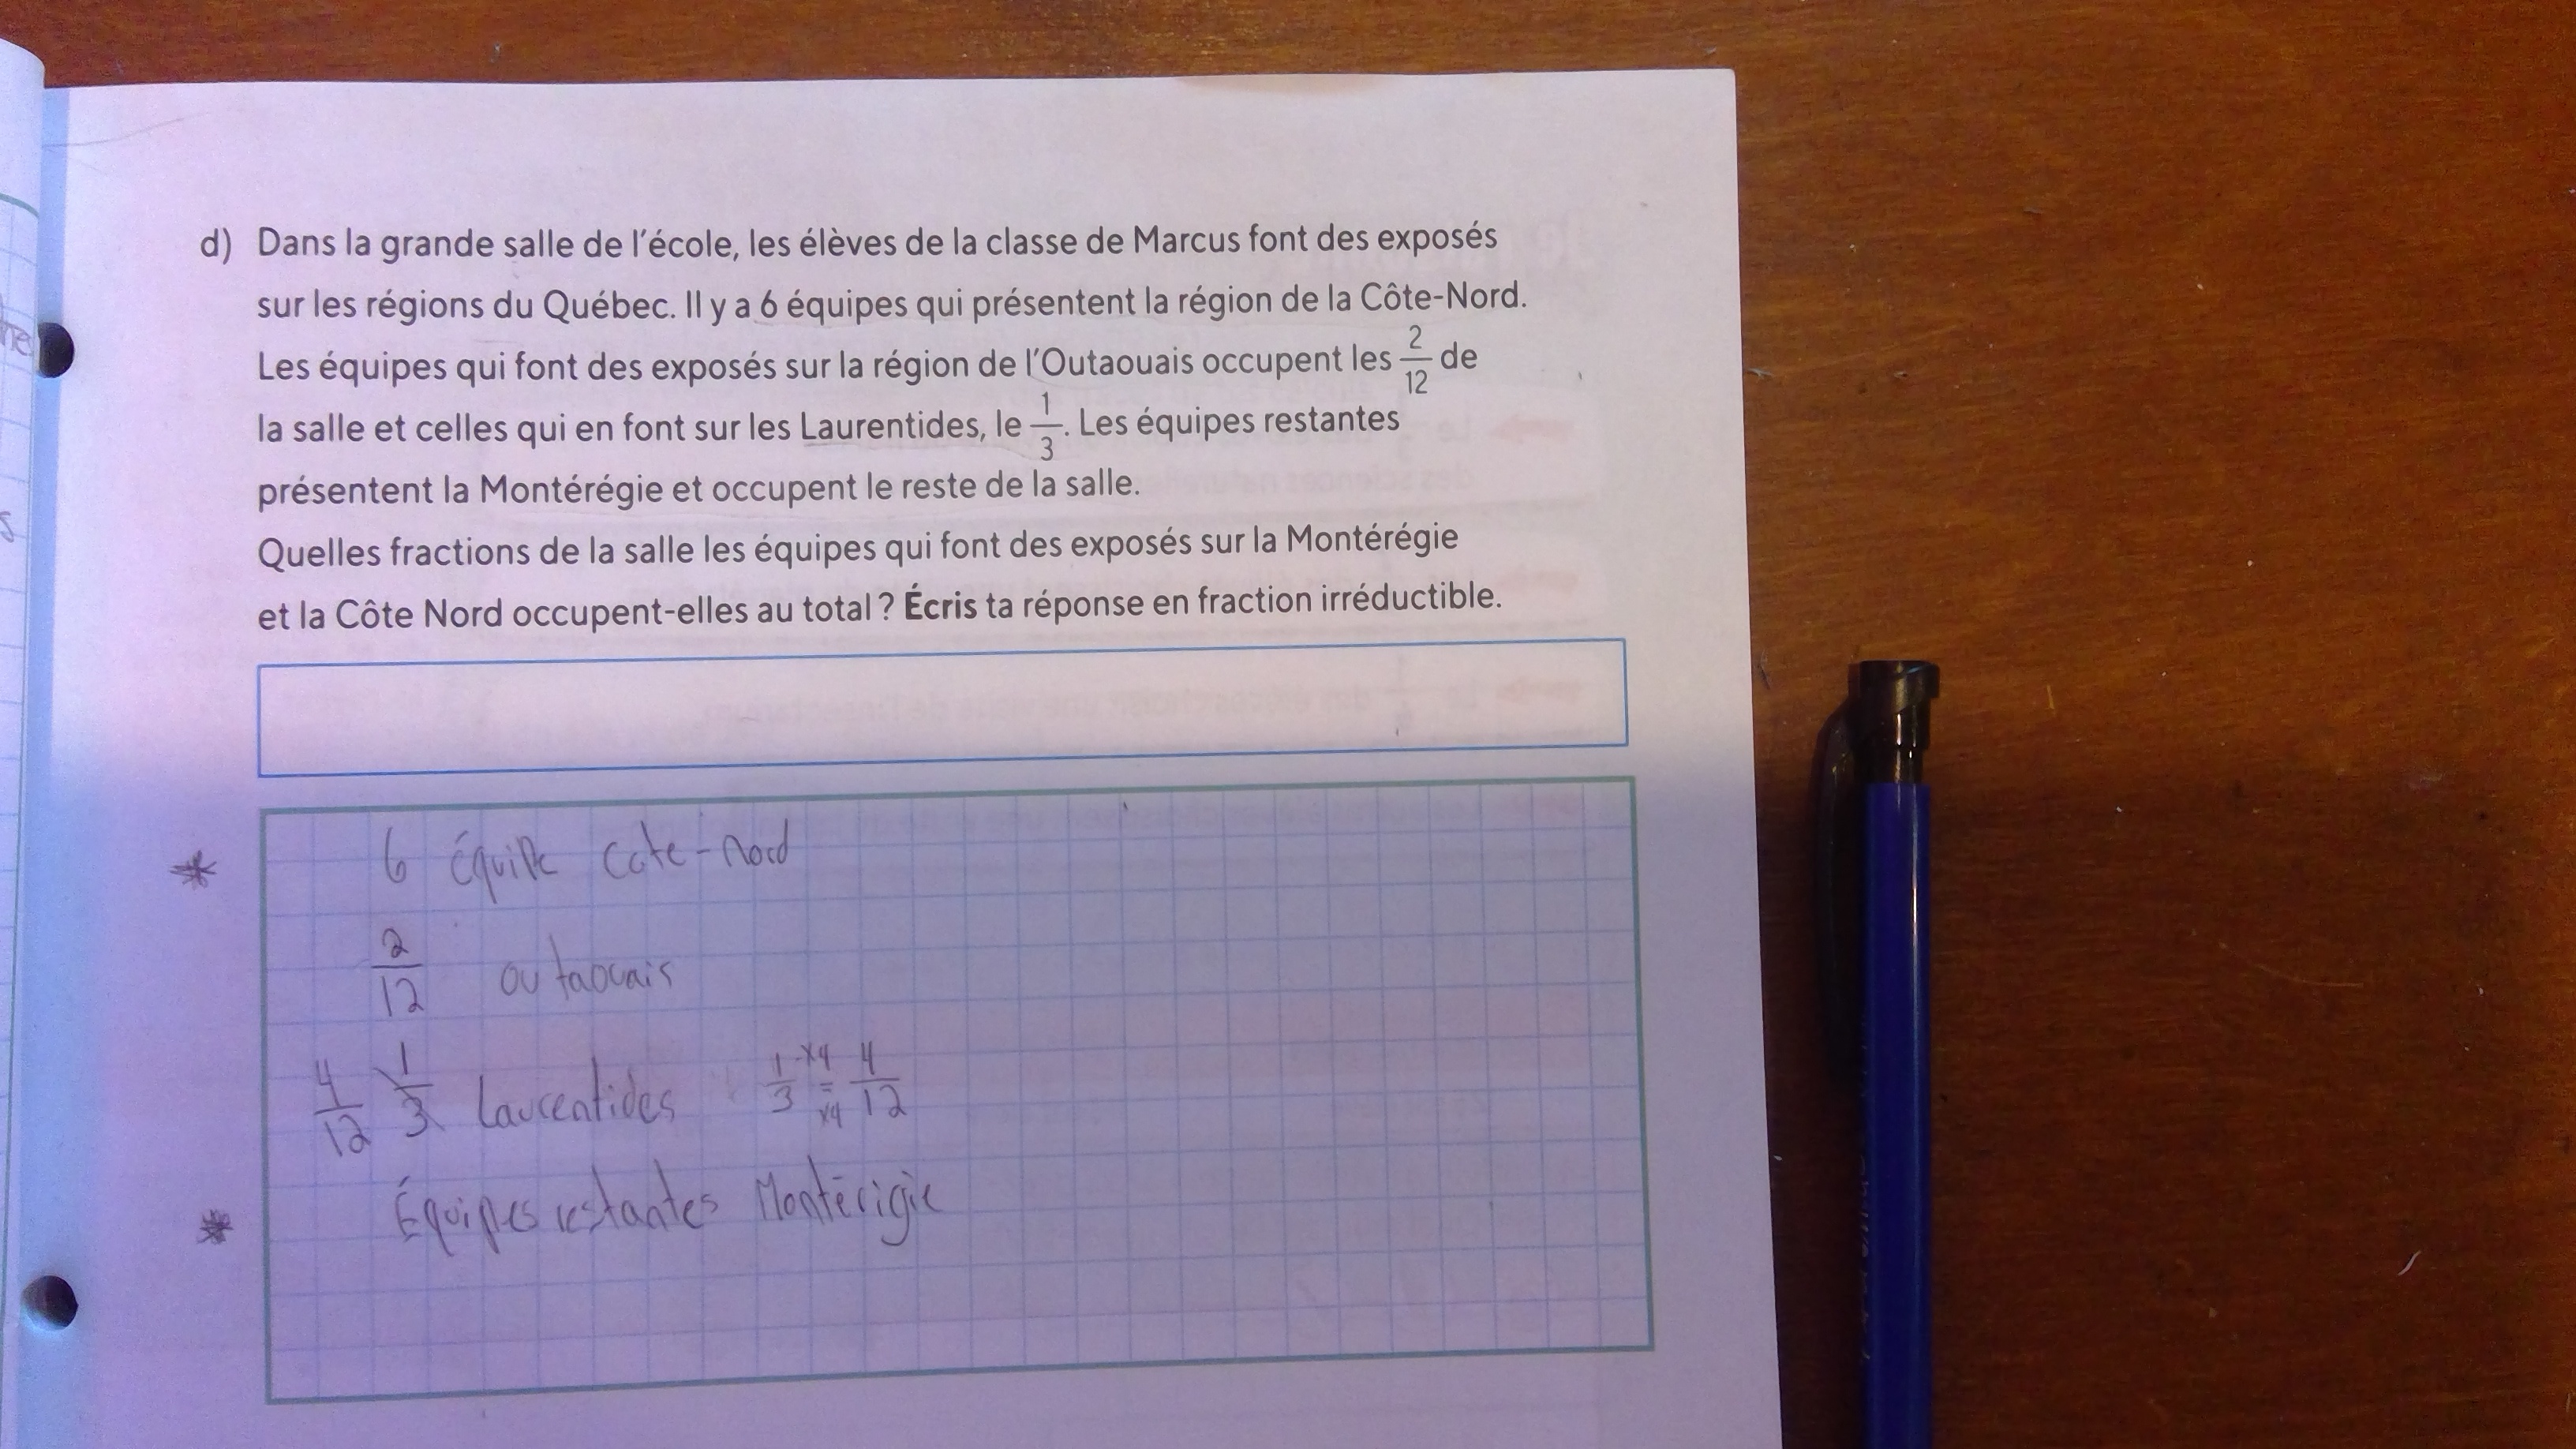 d) Dans la grande salle de l'école, les élèves de la classe de Marcus font des exposés
sur les régions du Québec. Il y a 6 équipes qui présentent la région de la Côte-Nord.
Les équipes qui font des exposés sur la région de l'Outaouais occupent les 2/12 de
la salle et celles qui en font sur les Laurentides, le 1/3. Les équipes restantes
présentent la Montérégie et occupent le reste de la salle.
Quelles fractions de la salle les équipes qui font des exposés sur la Montérégie
et la Côte Nord occupent-elles au total ? Écris ta réponse en fraction irréductible.
* 6 équipe Cote-Nord
2/12 outaouais
4/12 1/3 Laurentides 1/3 x4 = x4 4/12
* Équipes restantes Montérigie